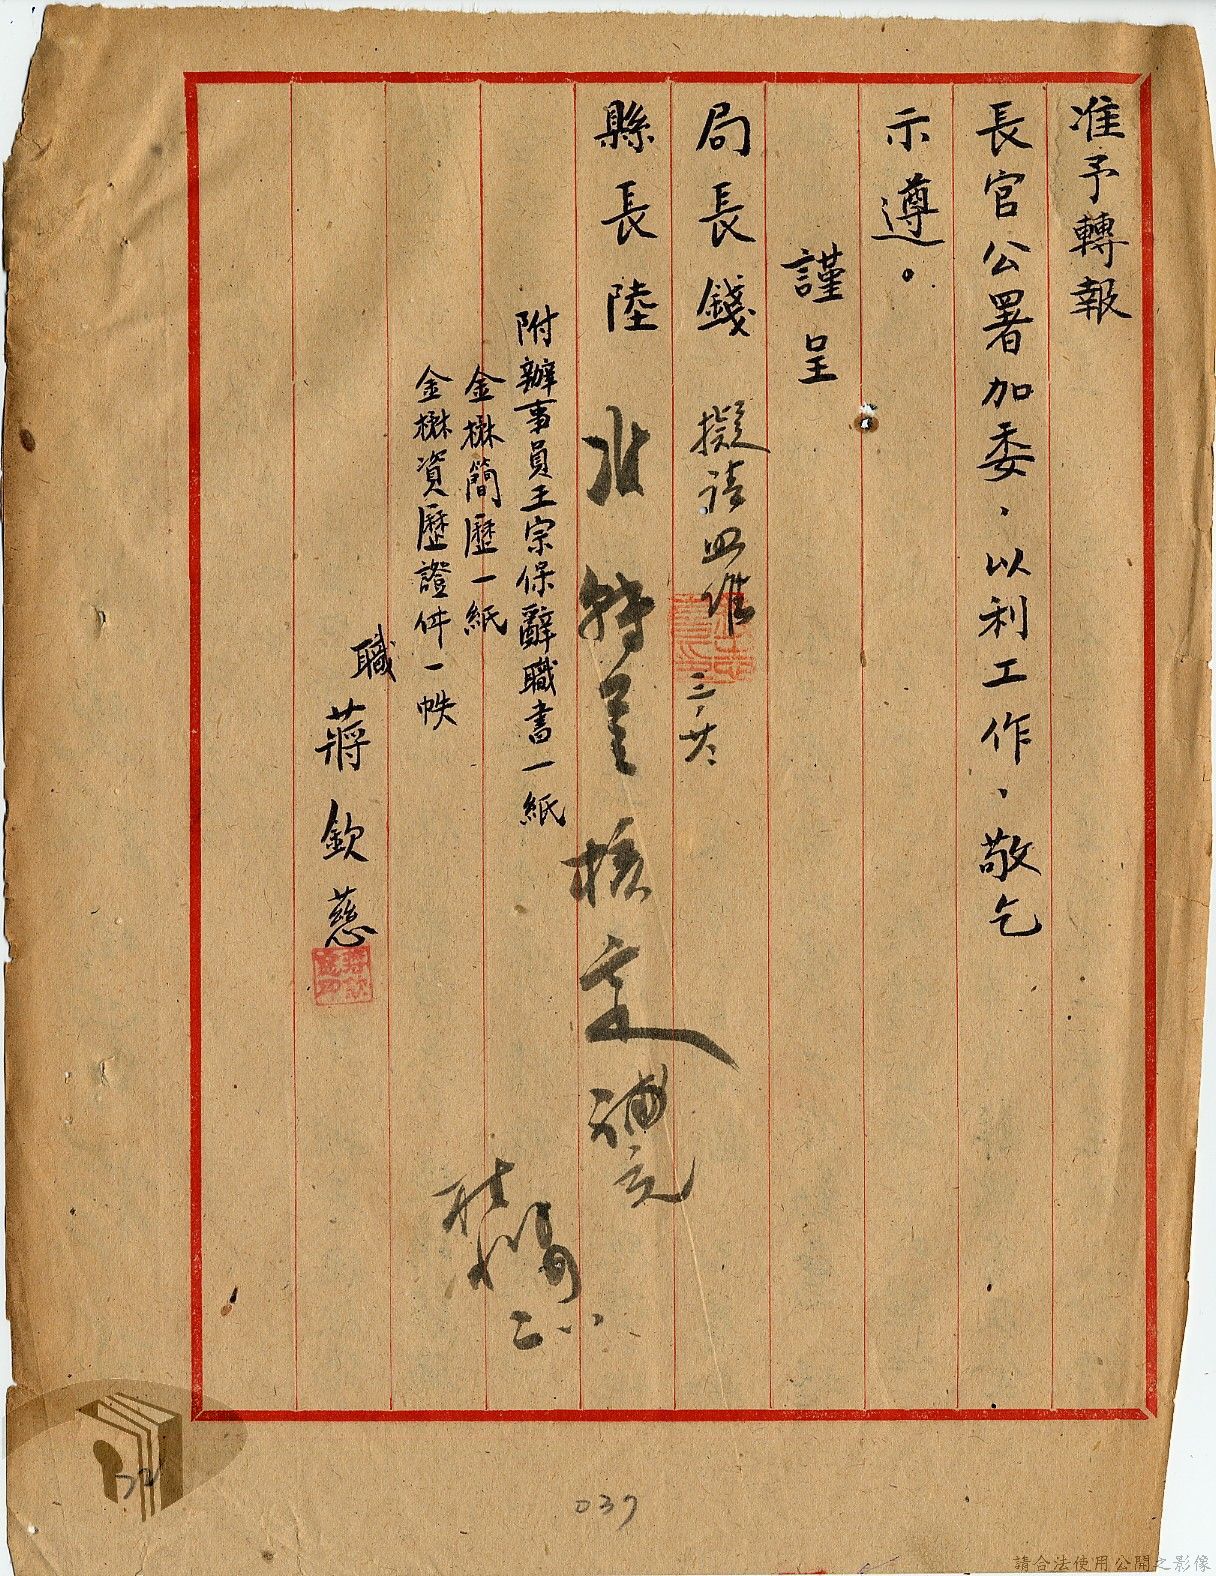 准予轉報
長官公署加委、以利工作、敬乞
示遵。
謹呈
局長錢
擬請照准
三、廿六
縣長陸
轉呈核定
附辦事員王宗保辭職書一紙
金楙簡歷一紙
金楙資歷證件一帙
職
蔣欽慈
037
請合法使用公開之影像